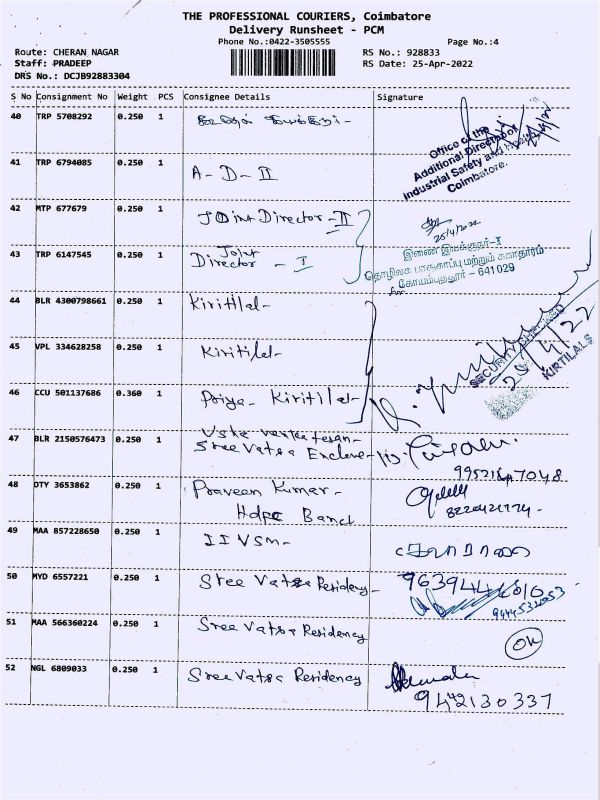 THE PROFESSIONAL COURIERS, Coimbatore
Delivery Runsheet - PCM
Phone No.:0422-3505555 Page No.:4
Route: CHERAN NAGAR RS No.: 928833
Staff: PRADEEP RS Date: 25-Apr-2022
DRS No.: DCJB92883304
S No Consignment No Weight PCS Consignee Details Signature
40 TRP 5708292 0.250 1
Office of the
Additional Director
Industrial Safety and Health
Coimbatore.
41 TRP 6794085 0.250 1 A-D-II
42 MTP 677679 0.250 1 Joint Director-II
25/4/2022
இணை இயக்குநர்-I
தொழிலக பாதுகாப்பு மற்றும் சுகாதாரம்
கோயம்புத்தூர் - 641029
43 TRP 6147545 0.250 1 Joint
Director - I
for
44 BLR 4300798661 0.250 1 Kiritilal-
45 VPL 334628258 0.250 1 Kiritilal-
SECURITY CHECKED
25/4/22
KIRTILALS
46 CCU 501137686 0.360 1 Priya- Kiritilal-
47 BLR 2150576473 0.250 1 Usha venkatesan-
Sree Vatsa Enclave-
9952167048
48 DTY 3653862 0.250 1 Praveen Kumar-
Hdfc Bank
8220421774-
49 MAA 857228650 0.250 1 IIVSM-
50 MYD 6557221 0.250 1 Sree Vatsa Residency-
51 MAA 566360224 0.250 1 Sree Vatsa Residency
OK
52 NGL 6809033 0.250 1 Sree Vatsa Residency
9442130337